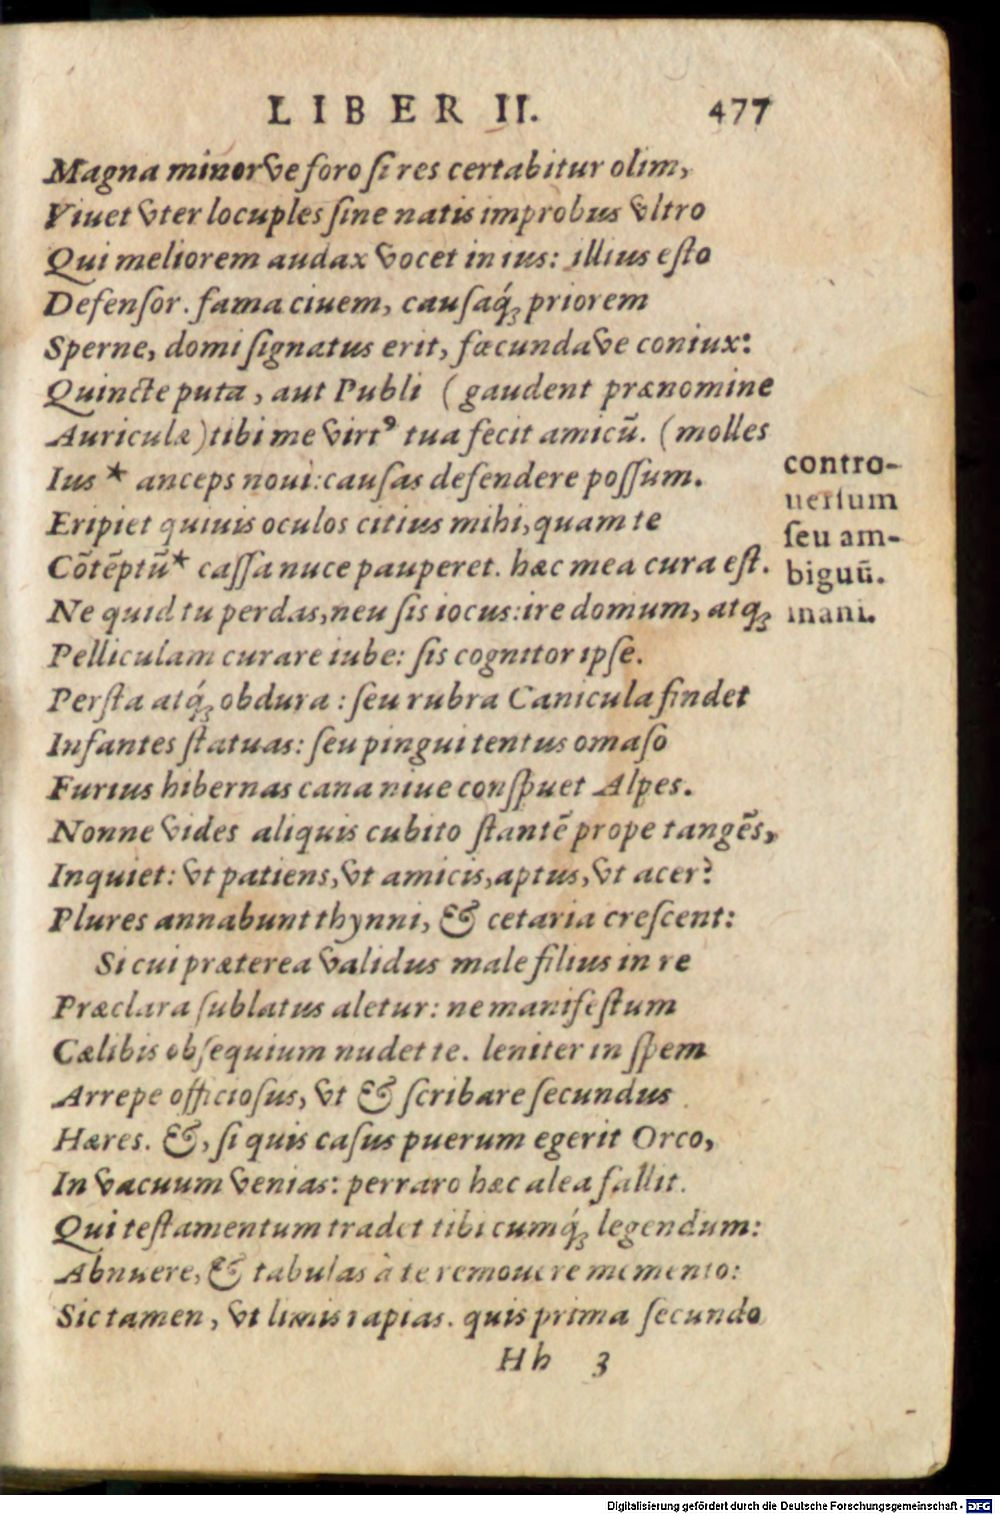 LIBER II. 477
Magna minorve foro si res certabitur olim,
Viuet vter locuples sine natis improbus vltro
Qui meliorem audax vocet in ius: illius esto
Defensor. fama ciuem, causaq́ꝫ priorem
Sperne, domi signatus erit, fœcundave coniux:
Quincte puta, aut Publi (gaudent prænomine
Auriculæ) tibi me virtꝰ tua fecit amicū. (molles
Ius * anceps novi: causas defendere possum.
Eripiet quiuis oculos citius mihi, quam te
Cōtēptū* cassa nuce pauperet. hæc mea cura est.
Ne quid tu perdas, neu sis iocus: ire domum, atqꝫ
Pelliculam curare iube: sis cognitor ipse.
Persta atq́ꝫ obdura: seu rubra Canicula findet
Infantes statuas: seu pingui tentus omaso
Furius hibernas cana niue conspuet Alpes.
Nonne vides aliquis cubito stantē prope tangēs,
Inquiet: vt patiens, vt amicis, aptus, vt acer?
Plures annabunt thynni, & cetaria crescent:
Si cui præterea validus male filius in re
Præclara sublatus aletur: ne manifestum
Cælibis obsequium nudet te. leniter in spem
Arrepe officiosus, vt & scribare secundus
Hæres. &, si quis casus puerum egerit Orco,
In vacuum venias: perraro hæc alea fallit.
Qui testamentum tradet tibi cumq́ꝫ legendum:
Abnuere, & tabulas à te remouere memento:
Sic tamen, vt limis rapias. quis prima secundo
Hh 3
contro-
uersum
seu am-
biguū.
inani.
Digitalisierung gefördert durch die Deutsche Forschungsgemeinschaft - DFG